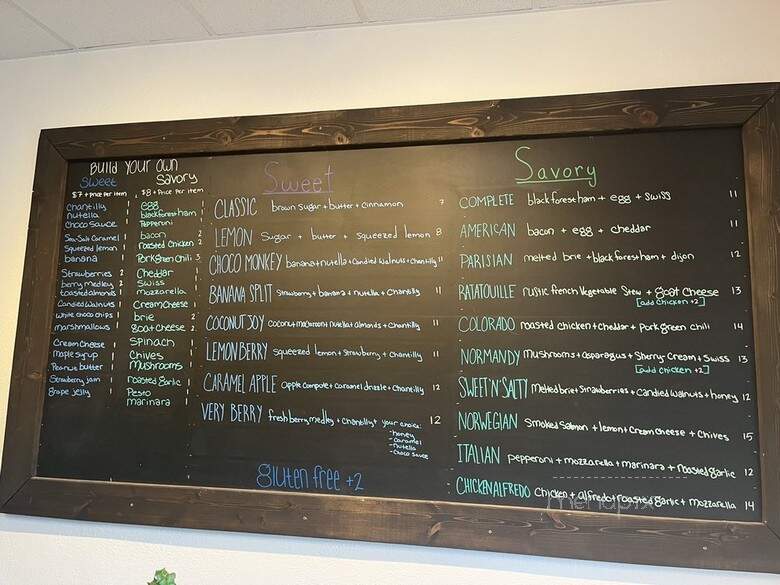 Build Your Own
Sweet
$7 + Price Per item
Chantilly 1
Nutella 1
Choco Sauce 1
Sea Salt Caramel 1
Squeezed lemon 1
banana 1
Strawberries 2
berry medley 2
toasted almonds 1
Candied Walnuts 1
white choco chips 1
marshmallows 1
Cream Cheese 1
maple syrup 1
Peanut butter 1
Strawberry jam 1
grape jelly 1
Savory
$8 + Price Per item
egg
black forest ham
Pepperoni
bacon 2
roasted chicken 2
Pork green Chili 3
Cheddar
Swiss
mozzarella
Cream Cheese 1
brie 2
goat cheese 2
Spinach
Chives
Mushrooms
roasted garlic
Pesto
marinara
Sweet
CLASSIC brown sugar + butter + cinnamon 7
LEMON Sugar + butter + squeezed lemon 8
CHOCO MONKEY banana + nutella + Candied Walnuts + Chantilly 11
BANANA SPLIT Strawberry + banana + nutella + Chantilly 11
COCONUT JOY Coconut macaroon + nutella + almonds + Chantilly 11
LEMONBERRY squeezed lemon + Strawberry + chantilly 11
CARAMEL APPLE apple compote + caramel drizzle + Chantilly 12
VERY BERRY fresh berry medley + chantilly + your choice: 12
- honey
- caramel
- nutella
- choco sauce
gluten free +2
Savory
COMPLETE black forest ham + egg + SWISS 11
AMERICAN bacon + egg + cheddar 11
PARISIAN melted brie + black forest ham + dijon 12
RATATOUILLE rustic french Vegetable Stew + goat Cheese 13
[add chicken +2]
COLORADO roasted chicken + cheddar + Pork green chili 14
NORMANDY Mushrooms + asparagus + Sherry Cream + Swiss 13
[add chicken +2]
SWEET'N'SALTY Melted brie + Strawberries + Candied Walnuts + honey 12
NORWEGIAN Smoked Salmon + lemon + Cream Cheese + Chives 15
ITALIAN pepperoni + mozzarella + marinara + Roasted garlic 12
CHICKEN ALFREDO Chicken + alfredo + roasted garlic + mozzarella 14
menupix